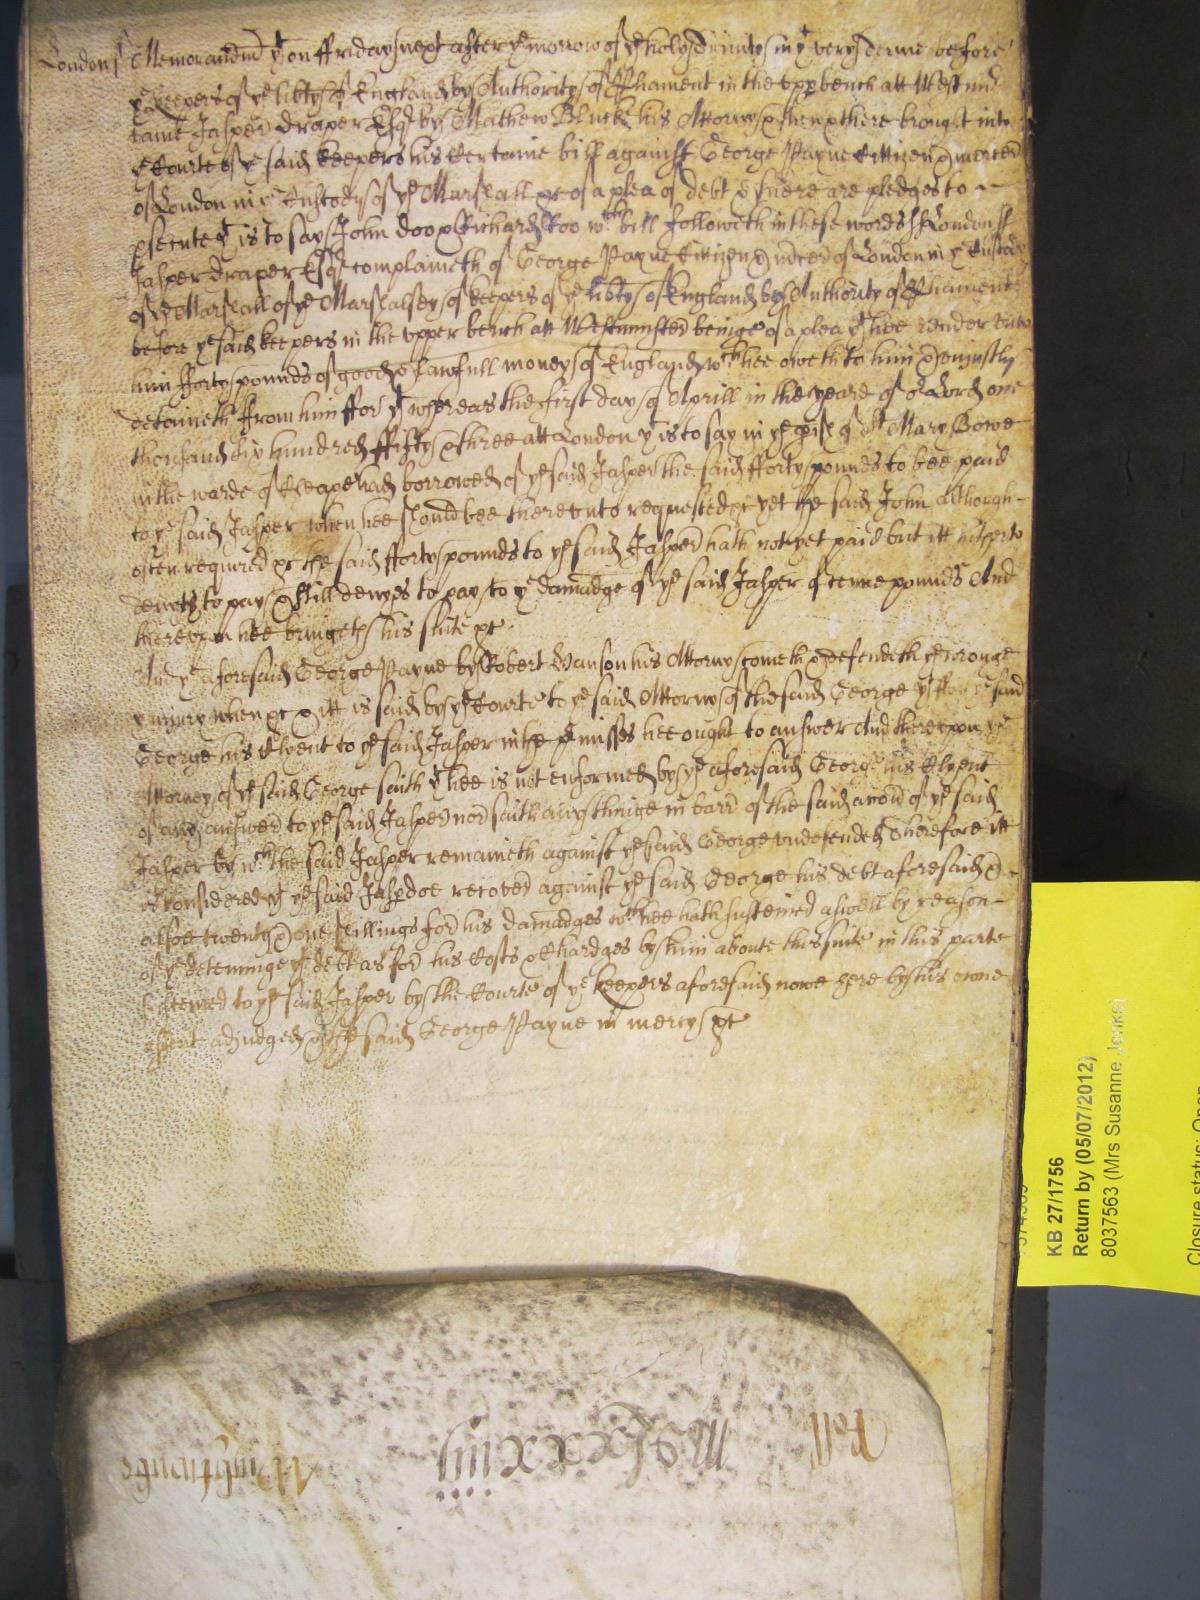 London ss Memorandud yt on ffriday next after ye morrow of ye holy Trinity in ys very terme before
ye keepers of ye libty of England by Authority of Pliament in the vpp bench att Westmr
came Jasper Draper Esqr by Mathew Bluck his Attorny & then & there brought into
ye Courte of ye said keepers his certaine bill against George Payne Cittizen & mercer
of London in ye Custody of ye Marshall &c of a plea of debt & there are pledges to
psecute yt is to say John doo & Richard Roo wch bill followeth in these words ss London ss
Jasper draper Esqr complaineth of George Payne Cittizen & mercer of London in ye Custody
of ye Marshall of ye Marshalsey of keepers of ye libty of England by Authority of Pliament
before ye said keepers in the vpper bench att Westminster beinge of a plea yt hee render vnto
him fforty pounds of good & lawfull money of England wch hee oweth to him & eniustly
detaineth from him ffor yt whereas the first day of Aprill in the yeare of or Lord one
thousand six hundred ffifty & three att London yt is to say in ye pish of St Mary Bowe
in the warde of Cheape had borrowed of ye said Jasper the said fforty pounds to bee paid
to ye said Jasper when hee should bee therevnto requested &c yet the said John although
often required &c the said fforty pounds to ye said Jasper hath not yet paid but itt hitherto
denyes to pay & still denyes to pay to ye damadge of ye said Jasper of tenne pounds And
therevpon hee bringeth his suite &c
And ye aforesaid George Payne by Robert Hanson his Attorny cometh & defendeth ye wronge
& iniury when &c & itt is said by ye Courte to ye said Attorny of the said George yt ffor ye said
George his Clyent to ye said Jasper in the pmisses hee ought to answer And therevpon ye
Attorney of ye said George saith yt hee is not enformed by ye aforesaid George his Clyent
of any answer to ye said Jasper nor saith any thinge in barr of the said accon of ye said
Jasper by wch the said Jasper remaineth against ye said George vndefended Therefore itt
is considered yt ye said Jasp doe recover against ye said George his debt aforesaid &
alsoe twenty & one shillings for his damadges wch hee hath susteined aswell by reason
of ye deteininge ye debt as for his Costs & Chardges by him aboute this suite in this parte
susteined to ye said Jasper by the Courte of ye keepers aforesaid nowe here by his owne
assent adiudged & the said George Payne in mercy &c
Roll
Wightwicke
KB 27/1756
Return by (05/07/2012)
8037563 (Mrs Susanne Jenks)
Closure status: Open